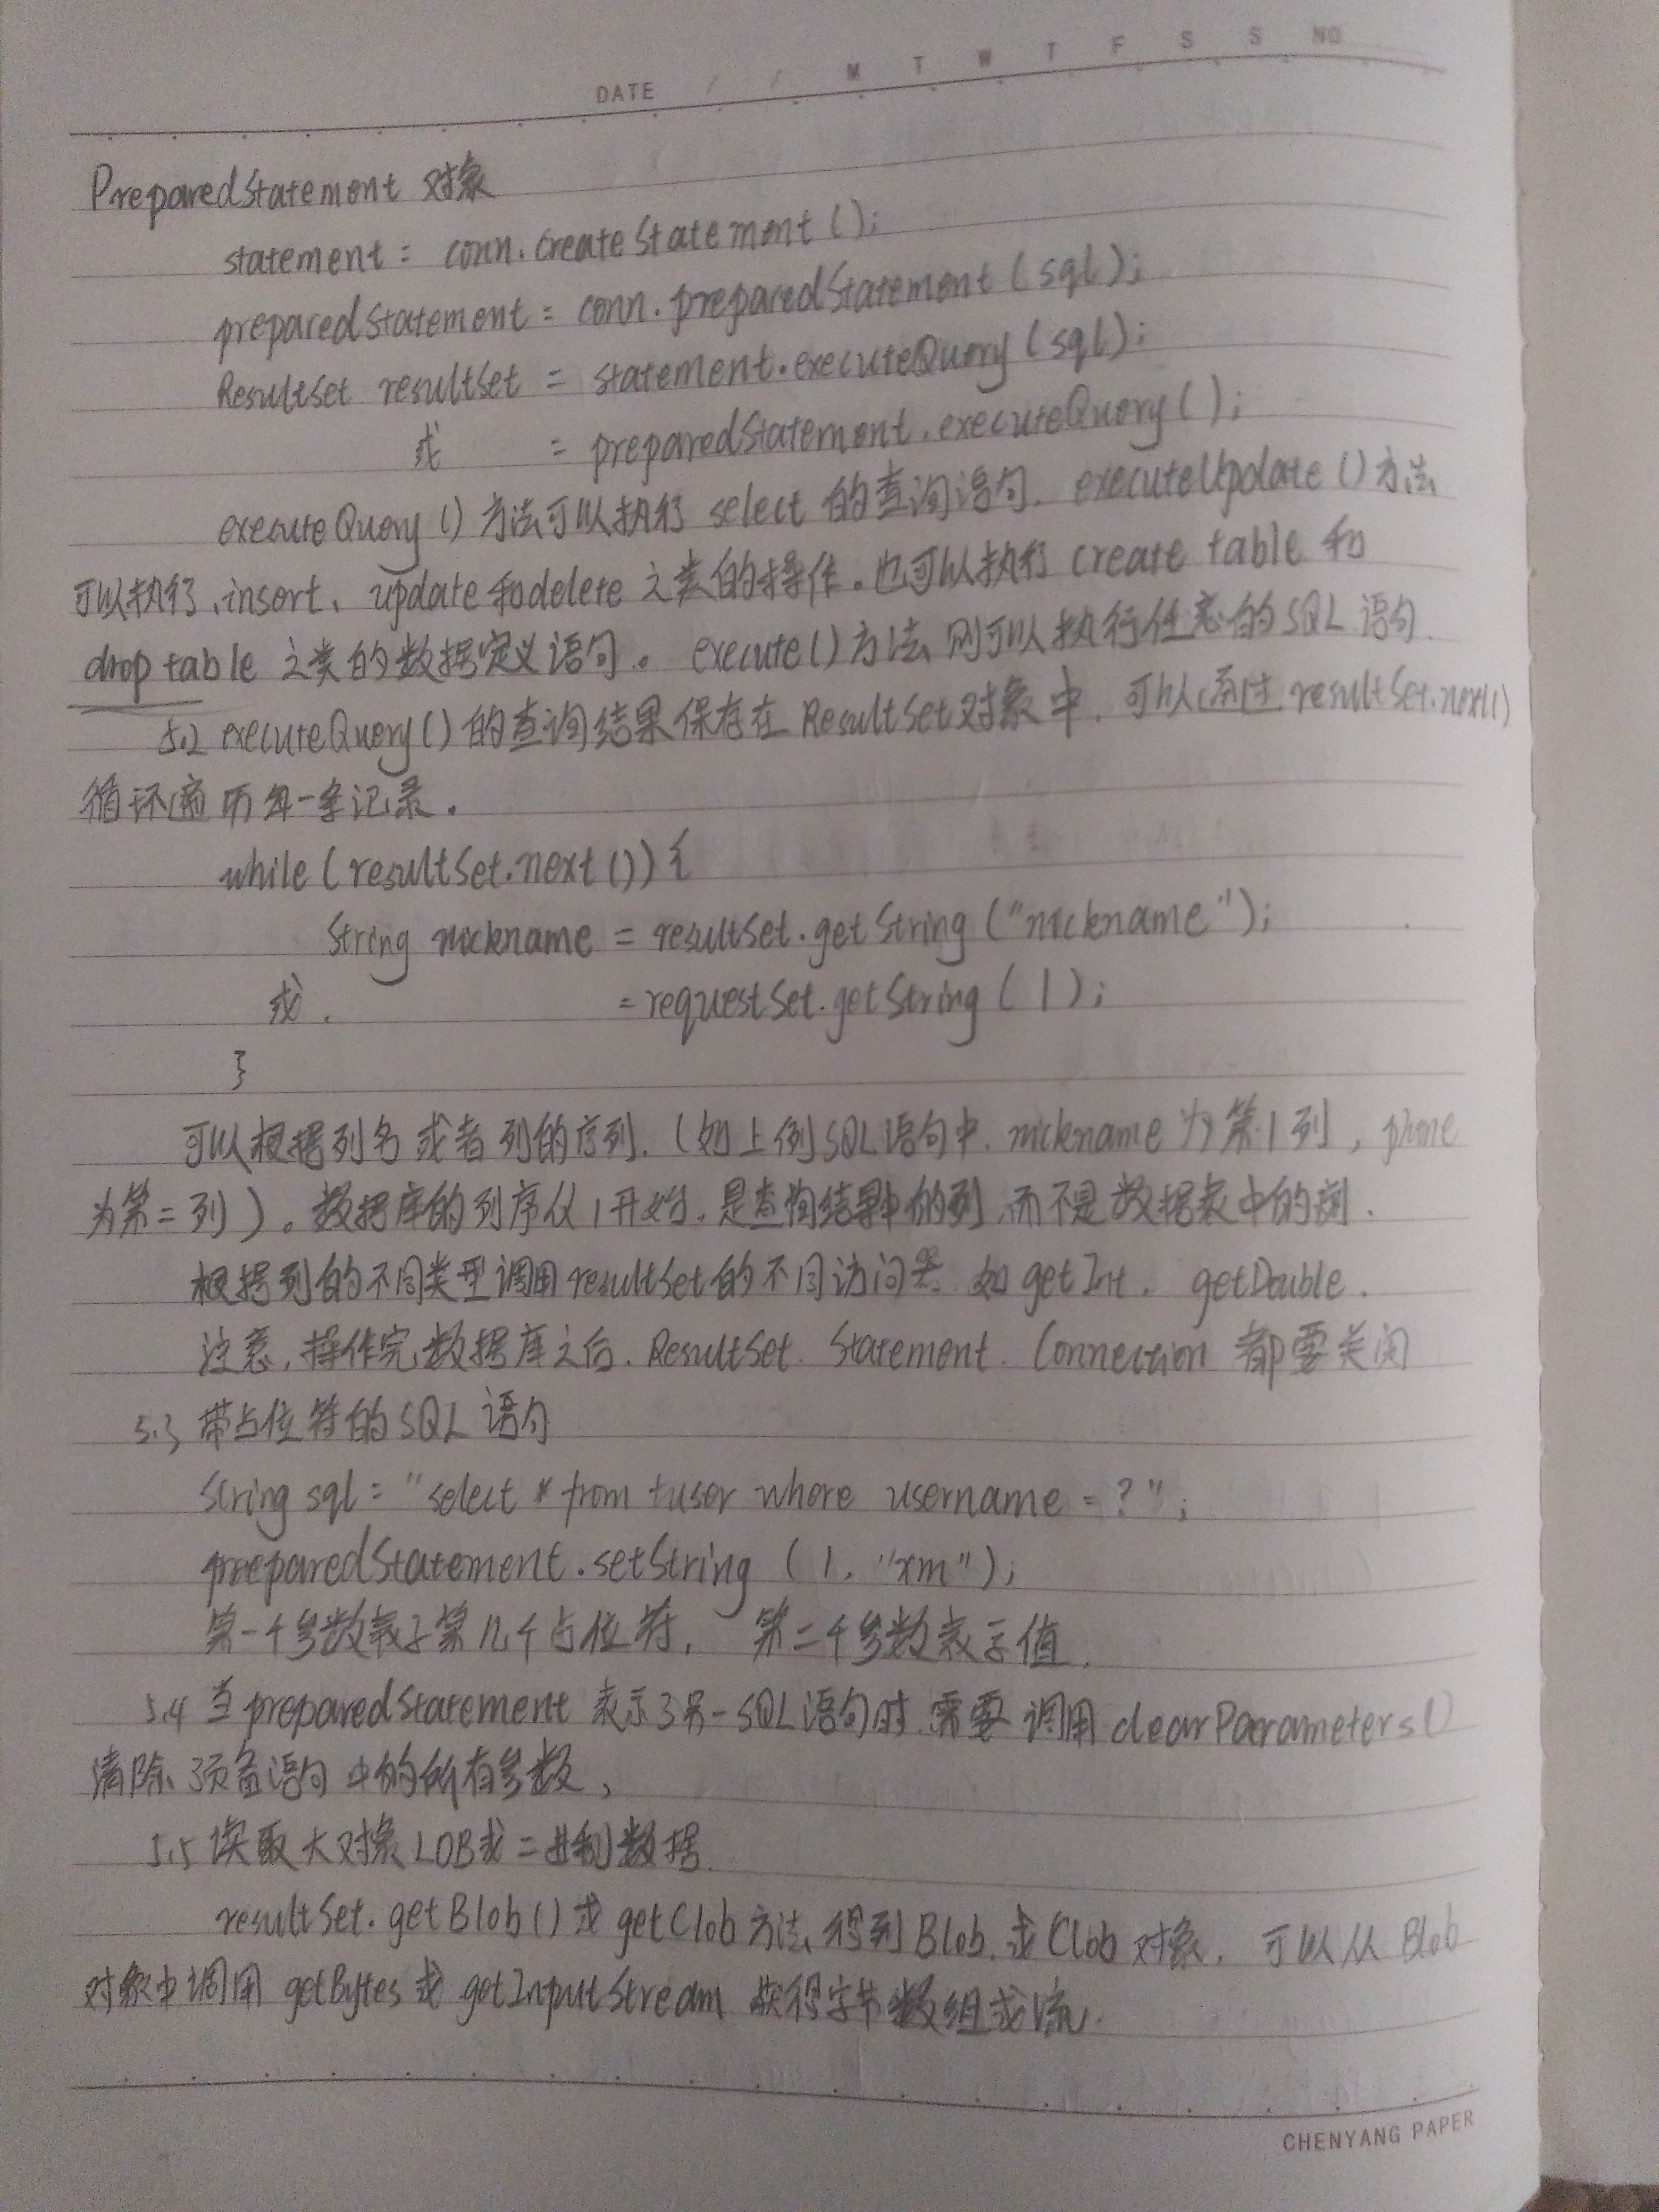 DATE / / M T W T F S S NO
PreparedStatement 对象
statement = conn.createStatement();
preparedStatement = conn.preparedStatement(sql);
ResultSet resultSet = statement.executeQuery(sql);
或 = preparedStatement.executeQuery();
executeQuery()方法可以执行 select 的查询语句. executeUpdate()方法
可以执行、insert、update和delete 之类的操作。也可以执行 create table 和
drop table 之类的数据定义语句。execute()方法则可以执行任意的SQL语句.
5.2 executeQuery()的查询结果保存在ResultSet对象中. 可以通过 resultSet.next()
循环遍历每一条记录.
while(resultSet.next()){
String nickname = resultSet.getString("nickname");
或. =requestSet.getString(1);
}
可以根据列名或者列的序列.(如上例SQL语句中. nickname 为第1列, phone
为第二列)。数据库的列序从1开始. 是查询结果中的列,而不是数据表中的列.
根据列的不同类型调用resultSet的不同访问器. 如getInt. getDouble.
注意,操作完数据库之后. ResultSet. Statement. Connection 都要关闭
5.3 带占位符的SQL语句
String sql = "select * from tuser where username = ?";
preparedStatement.setString (1, "xm");
第一个参数表示第几个占位符, 第二个参数表示值.
5.4 当preparedStatement 表示了另一SQL语句时,需要调用clearParameters()
清除预备语句中的所有参数,
5.5 读取大对象LOB或二进制数据.
resultSet.getBlob()或getClob方法,得到Blob.或Clob对象. 可以从Blob
对象中调用 getBytes或 getInputStream 获得字节数组或流.
CHENYANG PAPER